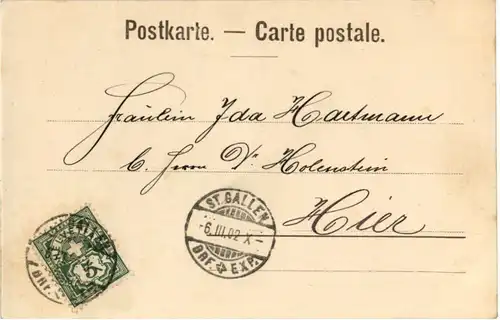 Postkarte. — Carte postale.
Fräulein Ida Hartmann
b. Herrn Dr. Holenstein
Hier
ST. GALLEN
-6.III.02.X-
BRF. EXP.
5
BRF.